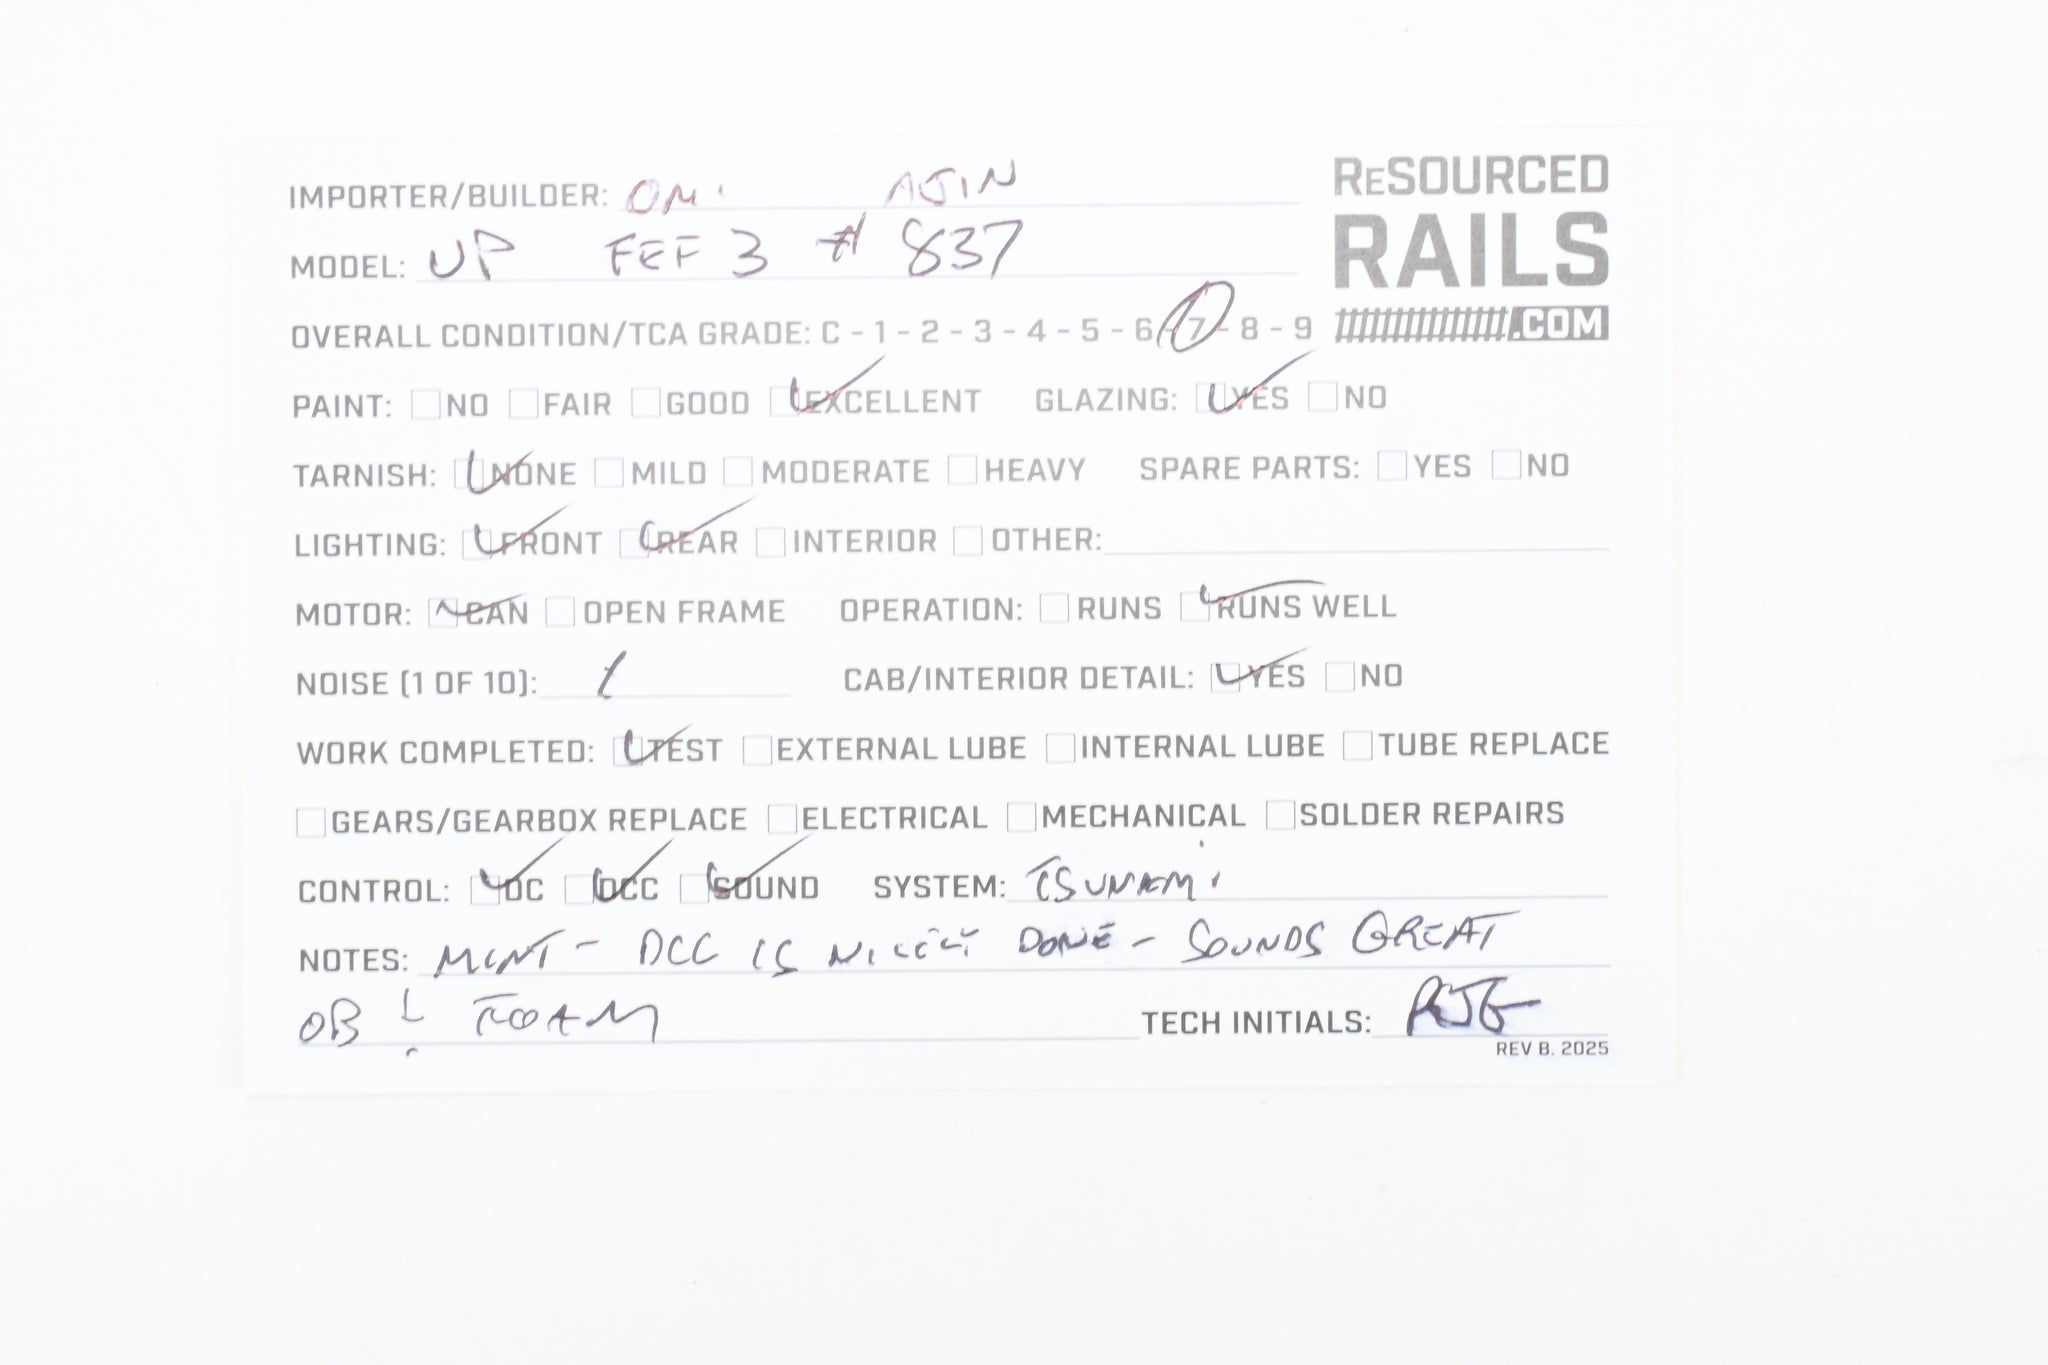 IMPORTER/BUILDER: OMI AJIN
RESOURCED
RAILS
.COM
MODEL: UP FEF 3 # 837
OVERALL CONDITION/TCA GRADE: C - 1 - 2 - 3 - 4 - 5 - 6 - 7 - 8 - 9
PAINT: NO FAIR GOOD EXCELLENT GLAZING: YES NO
TARNISH: NONE MILD MODERATE HEAVY SPARE PARTS: YES NO
LIGHTING: FRONT REAR INTERIOR OTHER:
MOTOR: CAN OPEN FRAME OPERATION: RUNS RUNS WELL
NOISE (1 OF 10): 1 CAB/INTERIOR DETAIL: YES NO
WORK COMPLETED: TEST EXTERNAL LUBE INTERNAL LUBE TUBE REPLACE
GEARS/GEARBOX REPLACE ELECTRICAL MECHANICAL SOLDER REPAIRS
CONTROL: DC DCC SOUND SYSTEM: TSUNAMI
NOTES: MINT - DCC IS NICELY DONE - SOUNDS GREAT
OB & FOAM TECH INITIALS: RJG
REV B. 2025